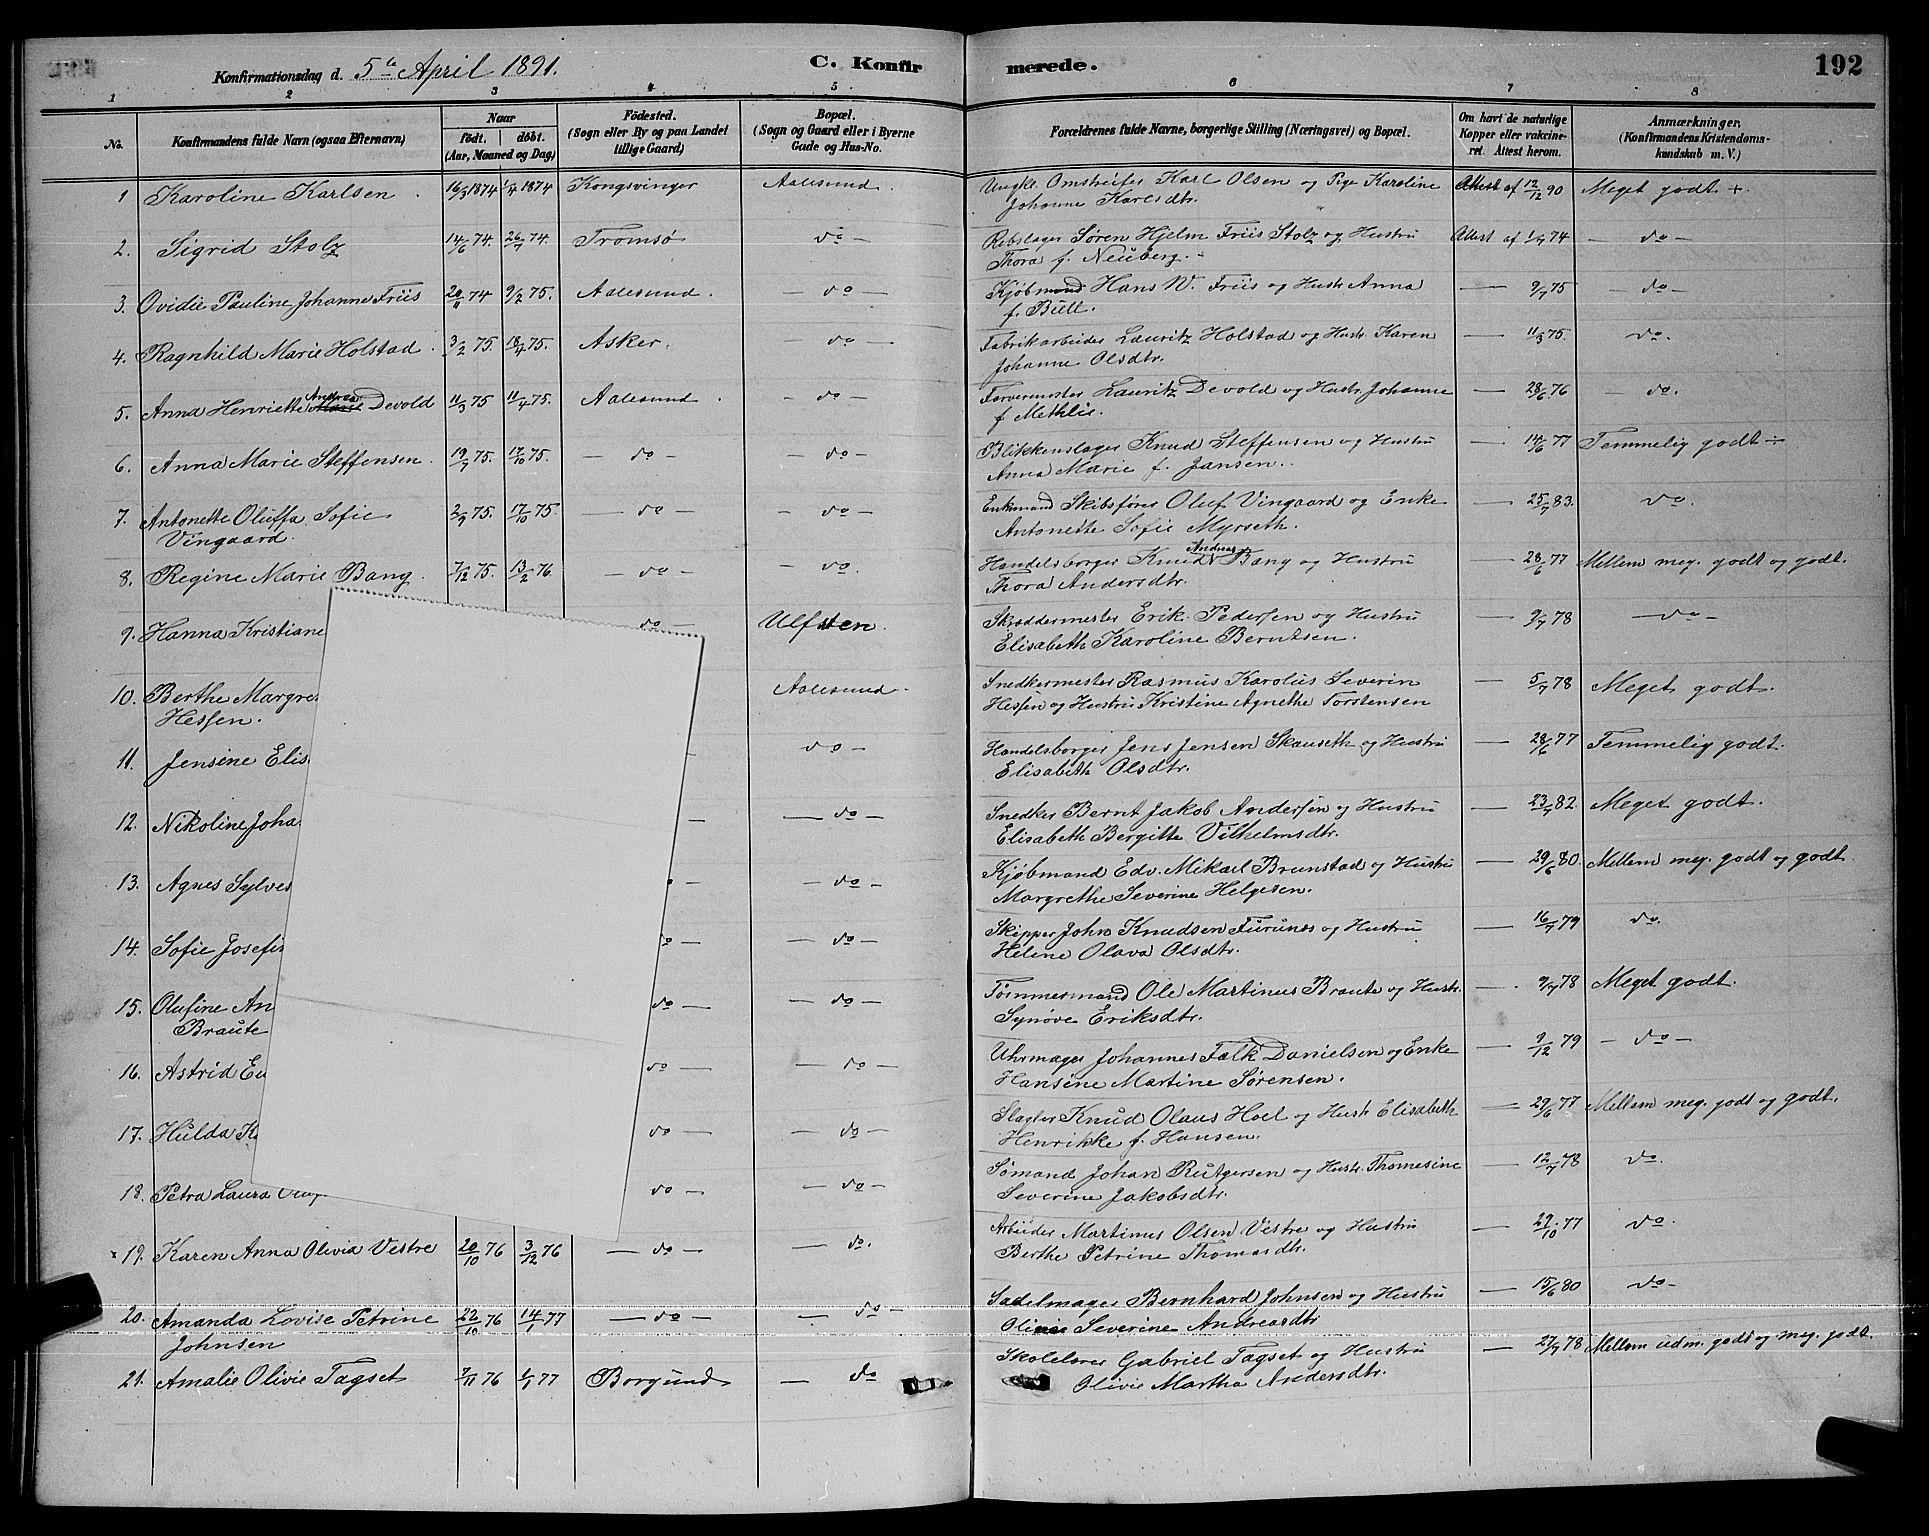 Konfirmationsdag d. 5te April 1891. C. Konfirmerede. 192
1 2 3 4 5 6 7 8
No. Konfirmandens fulde Navn (ogsaa Efternavn) Naar født. døbt. (Aar, Maaned og Dag) Fødested. (Sogn eller By og paa Landet tillige Gaard) Bopæl. (Sogn og Gaard eller i Byerne Gade og Hus-No. Forældrenes fulde Navne, borgerlige Stilling (Næringsvei) og Bopæl. Om havt de naturlige Kopper eller vakcineret. Attest herom. Anmærkninger, (Konfirmandens Kristendomskundskab m. V.)
1 Karoline Karlsen 16/3 1874 1/4 1874 Kongsvinger Aalesund. Ungk. Omstreifer Karl Olsen og Pige Karoline Attest af 12/12 90 Meget godt +
Johanne Karlsdtr.
2. Sigrid Stolz 14/6 74. 26/7 74. Tromsø do Rebslager Søren Hjelm Friis Stolz og Hustru Attest af 1/7 74 do
Thora f. Neuberg.
3. Ovidie Pauline Johanne Friis 20/11 74 9/2 75. Aalesund. do Kjøbmand Hans W. Friis og Hustr. Anna 9/7 75 do
f. Bull.
4. Ragnhild Marie Holstad 3/2 75. 18/4 75. Asker. do Fabrikarbeider Lauritz Holstad og Hustr. Karen 11/3 75. do.
Johanne Olsdtr.
5. Anna Henriette Andrea Devold 11/3 75 11/4 75. Aalesund. do Farvermester Lauritz Devold og Hustr. Johanne 28/6 76 do.
f. Methlie.
6. Anna Marie Steffensen. 19/7 75. 17/10 75. do do Blikkenslager Knud Steffensen og Hustru 14/6 77 Temmelig godt ÷
Anna Marie f. Jansen.
7. Antonette Oluffa Sofie 2/9 75. 17/10 75. do do Enkemand Skibsfører Oluf Vingaard og Enke 25/7 83. do.
Vingaard. Antonette Sofie Myrseth.
8. Regine Marie Bang. 7/12 75. 13/2 76. do do. Handelsborger Knud Andreas Bang og Hustru 28/6 77 Mellem meg. godt og godt.
Thora Andersdtr.
9. Hanna Kristiane do Ulfsten. Skræddermester Erik Pedersen og Hustru 9/7 78 do
Elisabeth Karoline Berntsen.
10. Berthe Margre Aalesund. Snedkermester Rasmus Karolus Severin 5/7 78 Meget godt.
Hessen. Hessen og Hustru Kristine Agnethe Torstensen
11. Jensine Elis do Handelsborger Jens Jensen Skauseth og Hustru 28/6 77 Temmelig godt.
Elisabeth Olsdtr.
12. Nikoline Joha do Snedker Bernt Jakob Andersen og Hustru 23/7 82. Meget godt.
Elisabeth Bergitte Vilhelmsdtr.
13. Agnes Sylves do Kjøbmand Edv. Mikael Brunstad og Hustru 29/6 80. Mellem meg. godt og godt
Margrethe Severine Helgesen.
14. Sofie Josefi do do Skipper John Knudsen Furunes og Hustru 16/7 79 do.
Helene Olava Olsdtr.
15. Olufine An do do Tømmermand Ole Martinus Braute og Hustr. 9/7 78 Meget godt.
Braute Synøve Eriksdtr.
16. Astrid Eu do do Uhrmager Johannes Falk Danielsen og Enke 9/12 79 do
Hansine Martine Sørensen.
17. Hulda K do do Slagter Knud Olaus Hoel og Hustr. Elisabeth 29/6 77 Mellem meg. godt og godt.
Henrikke f. Hansen.
18. Petra Laura do do Sømand Johan Rutgersen og Hustr. Thomesine 12/7 78 do.
Severine Jakobsdtr.
19. Karen Anna Olivia Vestre 20/10 76 3/12 76 do do. Arbeider Martinus Olsen Vestre og Hustru 29/10 77 do.
Berthe Petrine Thomasdtr.
20. Amanda Lovise Petrine 22/10 76 14/1 77 do do Sadelmager Bernhard Johnsen og Hustru 15/6 80 do
Johnsen Severine Andreasdtr
21. Amalie Olivie Tagset 7/11 76 1/1 77 Borgund do Skolelærer Gabriel Tagset og Hustru 27/7 78 Mellem udm. godt og meg. godt.
Olivie Martha Andersdtr.